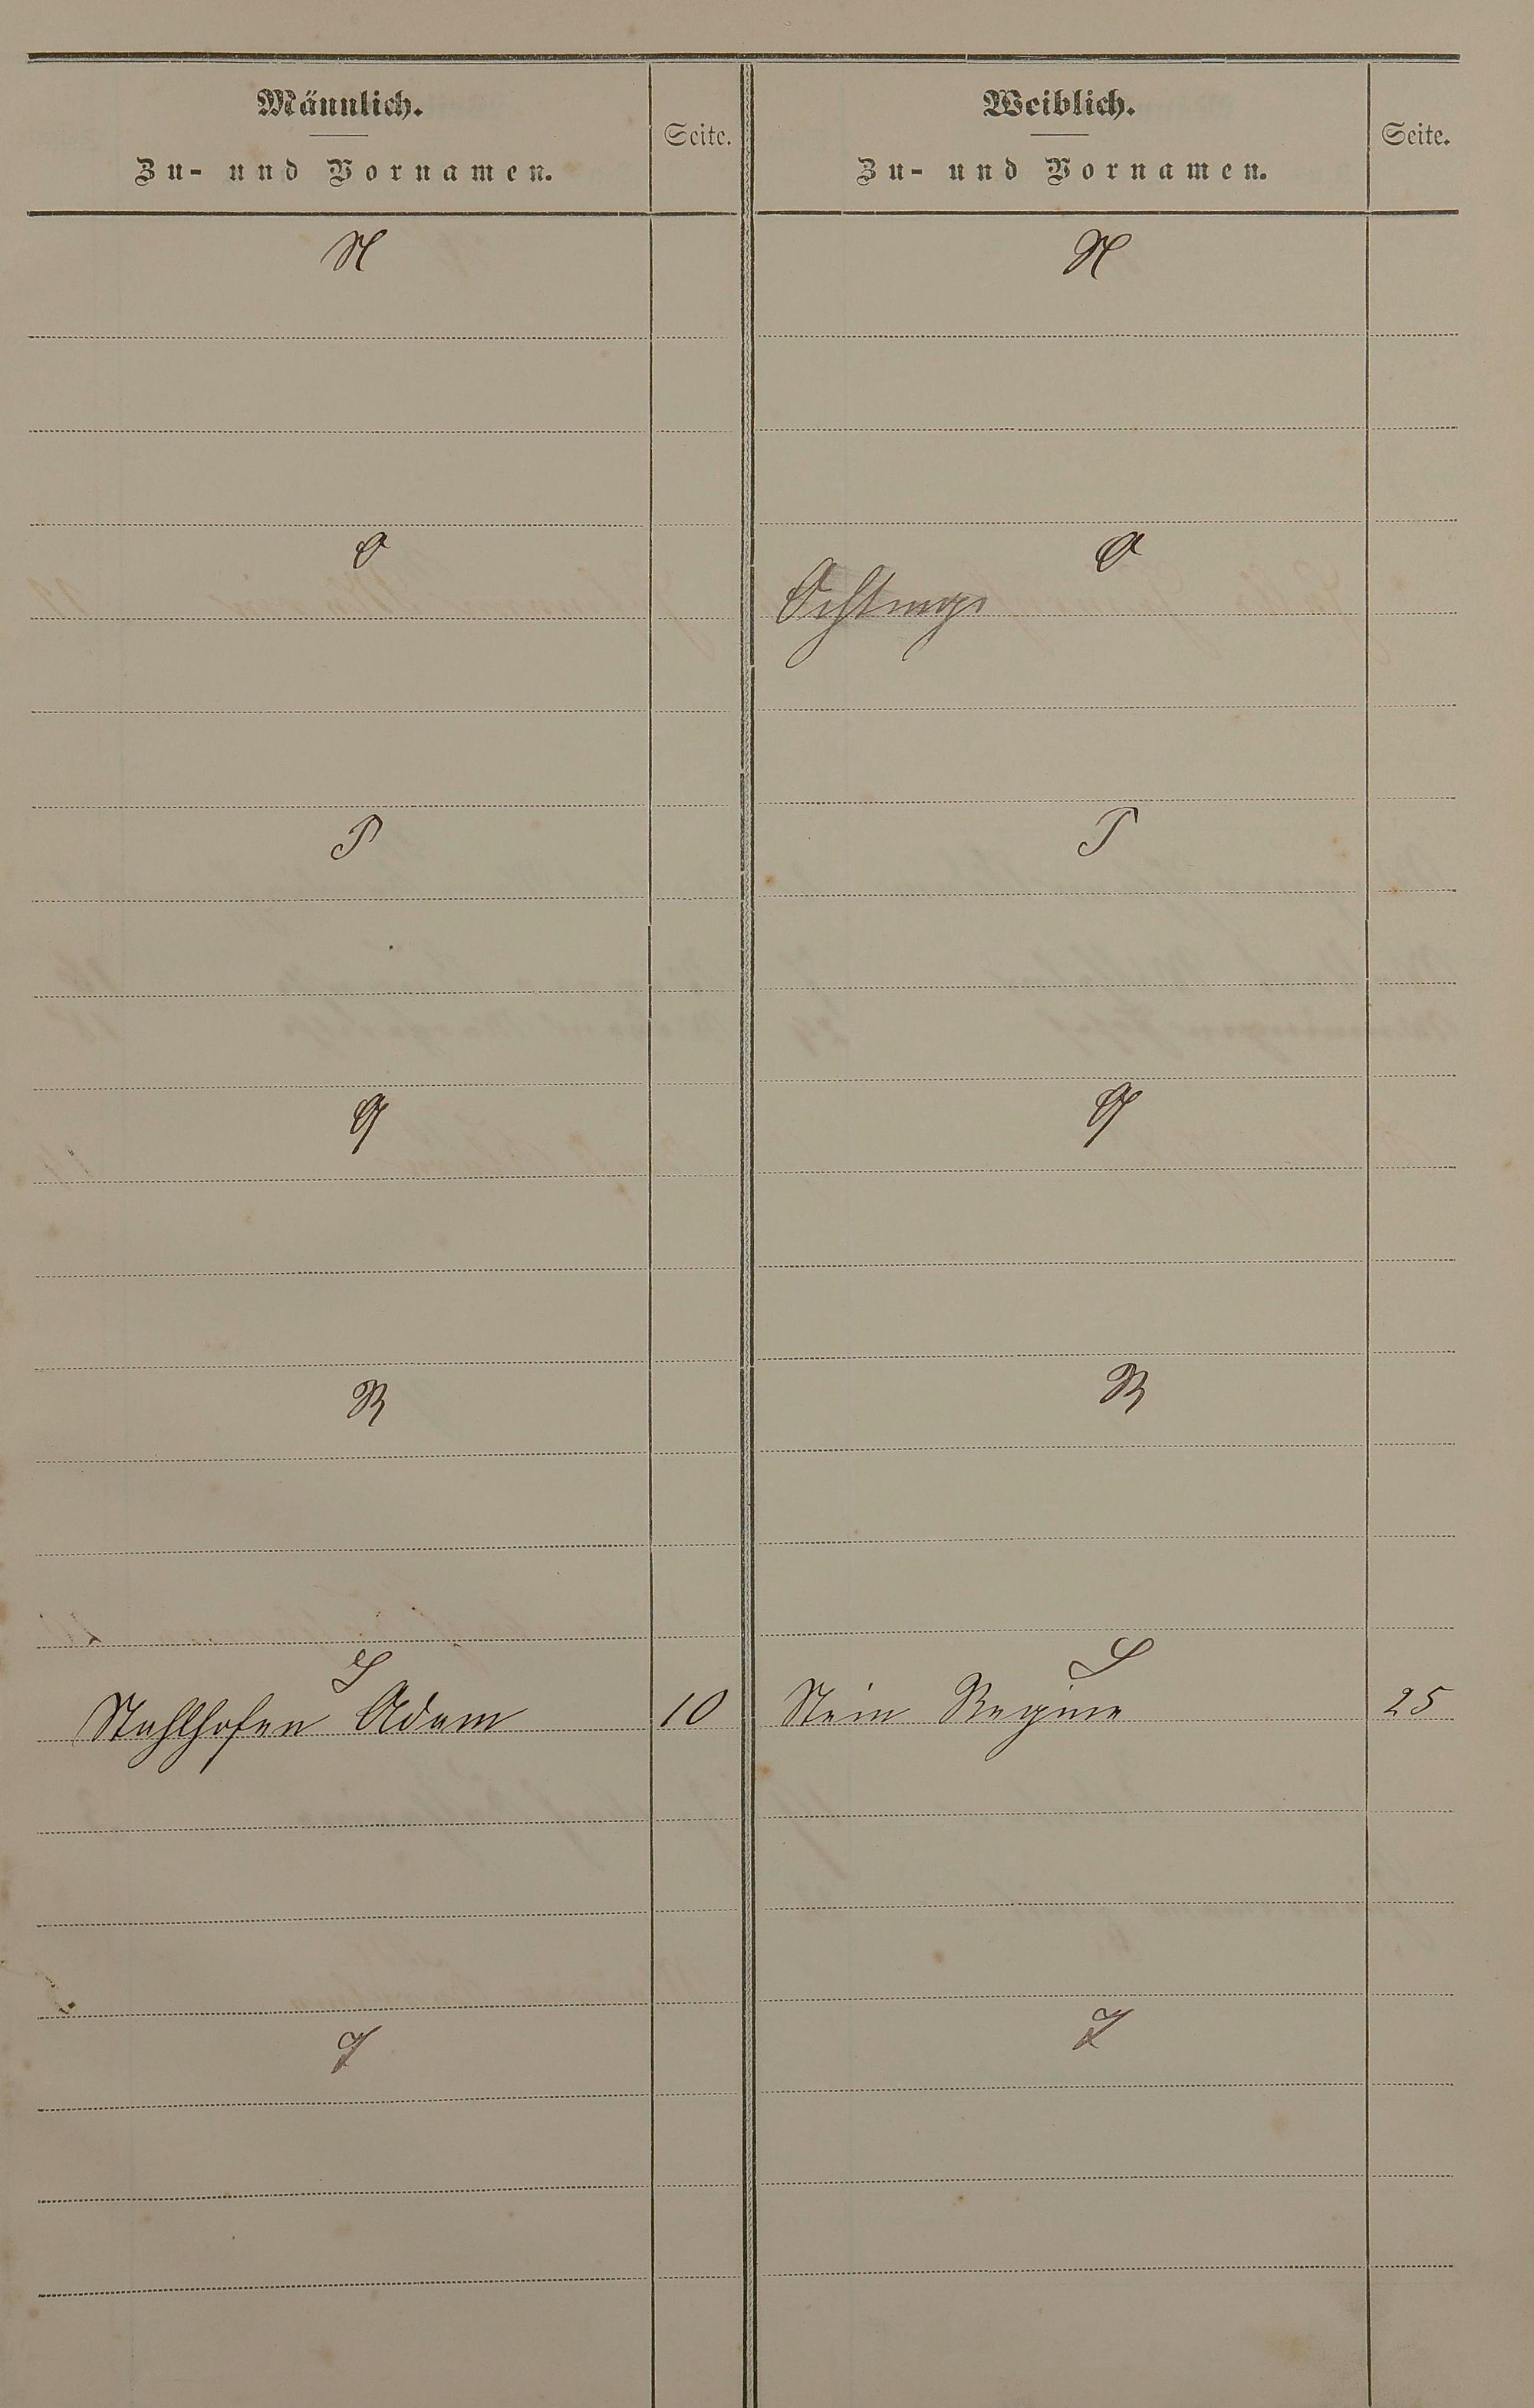 Männlich.
Zu- und Vornamen.
Seite.
Weiblich.
Zu- und Vornamen.
Seite.
N
N
O
O
P
P
Q
Q
R
R
S
S
Stahlhofen Adam 10
Stein Regine 25
T
T